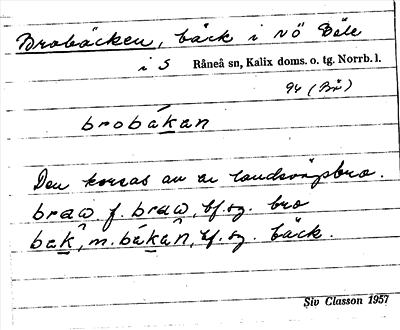 Brobäcken, bäck i NÖ Böle
i S Råneå sn, Kalix doms. o. tg. Norrb. l.
94 (Bö)
brobákan
Den korsas av en landsvägsbro.
braw f. braŵ, bf. sg. bro
bak̂, m. bákan̂, bf. sg. bäck.
Siv Classon 1957